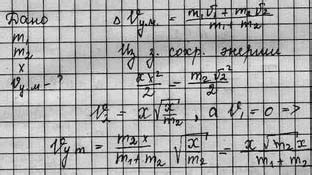 Дано
m₁
m₂
x
v ц.м. - ?
v ц.м. = (m₁v₁ + m₂v₂)/(m₁ + m₂)
Из з. сохр. энергии
xx²/2 = m₂v₂²/2
v₂ = x√(x/m₂), а v₁ = 0 =>
v ц m = (m₂x)/(m₁ + m₂) √(x/m₂) = (x√(m₂x))/(m₁ + m₂)